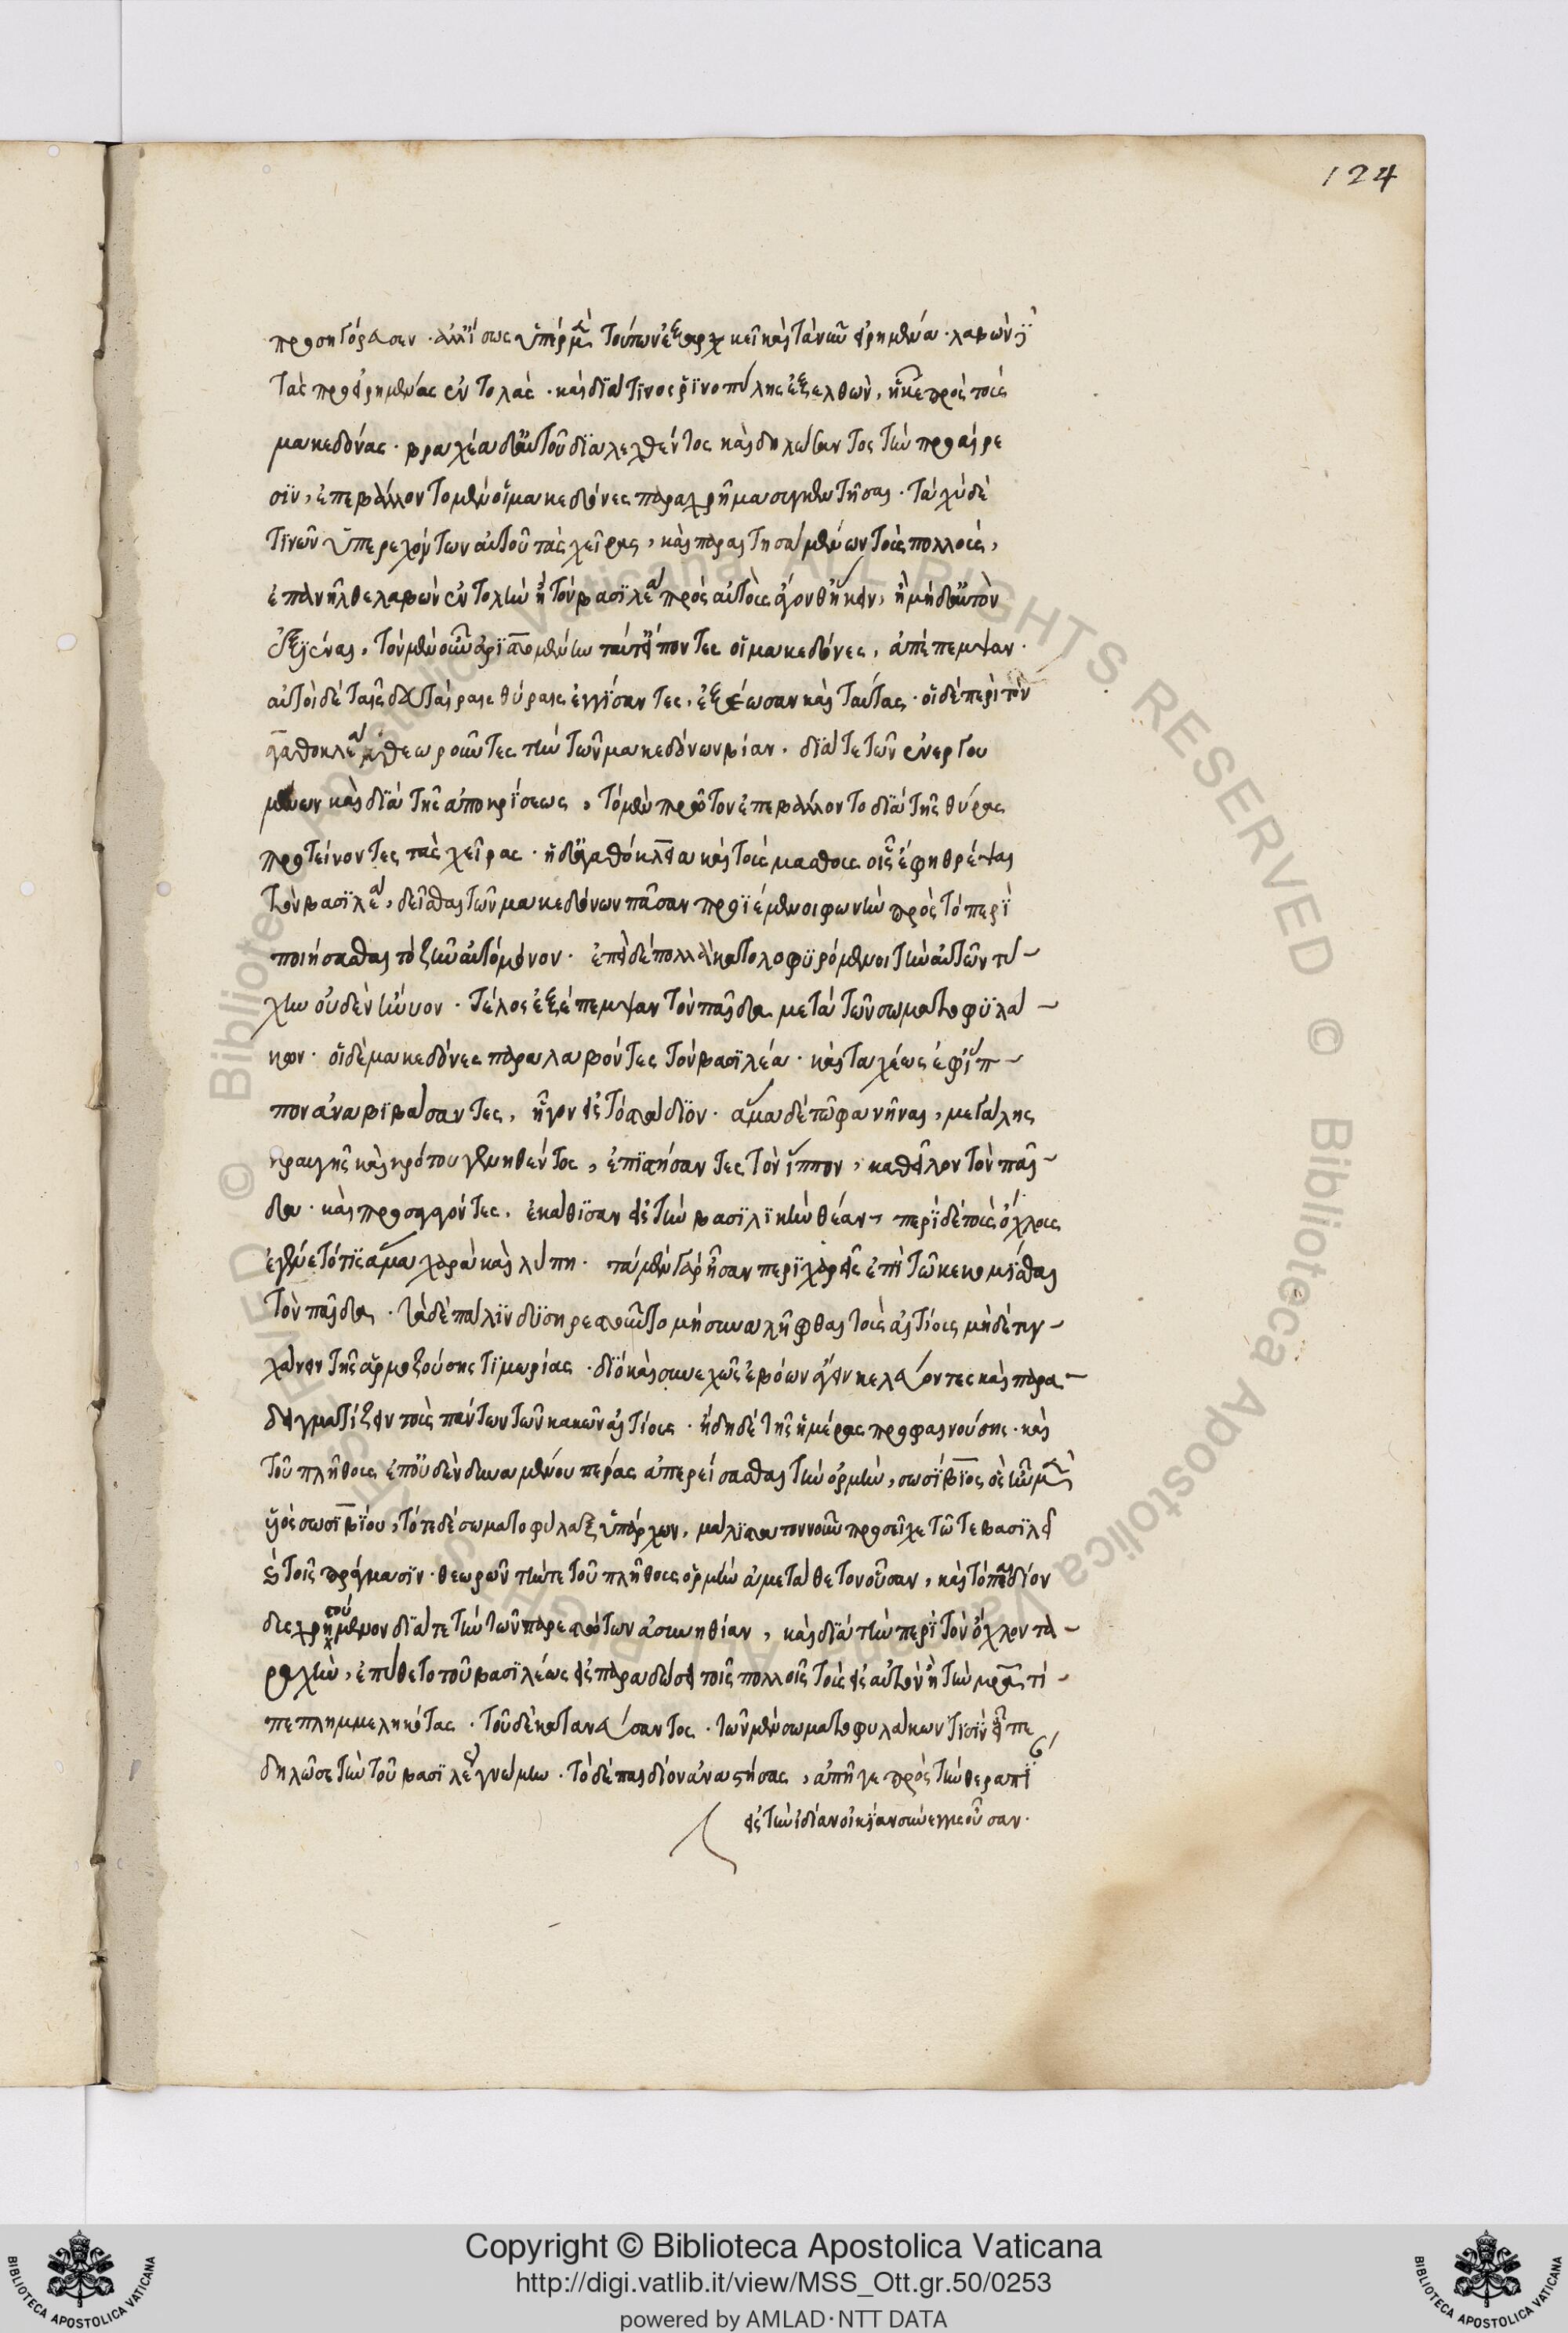 124
προσηγόρευσεν. ἀλλ' ἴσως ὑπὲρ μὲν τούτων ἐξαρκεῖ καὶ τὰ νῦν εἰρημένα. λαβὼν δ'
τὰς προειρημένας ἐντολὰς. καὶ διά τινος ῥινοπύλης ἐξελθὼν, ἧκε πρὸς τοὺς
μακεδόνας. βραχέα δ' αὐτοῦ διαλεχθέντος καὶ δηλώσαντος τὴν προαίρε
σιν, ἐπεβάλλοντο μὲν οἱ μακεδόνες παραχρῆμα συγκεντῆσαι. ταχὺ δὲ
τινῶν ὑπερεχόντων αὐτοῦ τὰς χεῖρας, καὶ παραιτησαμένων τοὺς πολλοὺς,
ἐπανῆλθε λαβὼν ἐντολὴν ἢ τὸν βασιλέα πρὸς αὐτοὺς ἄγονθ' ἥκειν, ἢ μηδ' αὐτὸν
ἐξιέναι. τὸν μὲν οὖν ἀριστομένην ταῦτ' εἰπόντες οἱ μακεδόνες, ἀπέπεμψαν.
αὐτοὶ δὲ ταῖς δευτέραις θύραις ἐγγίσαντες, ἐξέωσαν καὶ ταύτας. οἱ δὲ περὶ τὸν
ἀγαθοκλέα θεωροῦντες τὴν τῶν μακεδόνων βίαν. διά τε τῶν ἐνεργου
μένων καὶ διὰ τῆς ἀποκρίσεως, τὸ μὲν πρῶτον ἐπεβάλλοντο διὰ τῆς θύρας
προτείνοντες τὰς χεῖρας. ἡ δ' ἀγαθόκλεια καὶ τοὺς μασθοὺς οἷς ἔφη θρέψαι
τὸν βασιλέα, δεῖσθαι τῶν μακεδόνων πᾶσαν προϊέμενοι φωνὴν πρὸς τὸ περι
ποιήσασθαι τὸ ζῆν αὐτὸ μόνον. ἐπεὶ δὲ πολλὰ κατολοφυρόμενοι τὴν αὐτῶν τύ
χην οὐδὲν ἤνυον. τέλος ἐξέπεμψαν τὸν παῖδα μετὰ τῶν σωματοφυλά
κων. οἱ δὲ μακεδόνες παραλαβόντες τὸν βασιλέα. καὶ ταχέως ἐφ' ἵπ
πον ἀναβιβάσαντες, ἦγον εἰς τὸ στάδιον. ἅμα δὲ τῷ φανῆναι, μεγάλης
κραυγῆς καὶ κρότου γενηθέντος, ἐπιστήσαντες τὸν ἵππον, καθεῖλον τὸν παῖ
δα. καὶ προσαγόντες, ἐκάθισαν εἰς τὴν βασιλικὴν θέαν, περὶ δὲ τοὺς ὄχλους
ἐγένετό τις ἅμα χαρὰ καὶ λύπη. τὰ μὲν γὰρ ἦσαν περιχαρεῖς ἐπὶ τῷ κεκομίσθαι
τὸν παῖδα. τὰ δὲ πάλιν δυσηρεστοῦντο μὴ συνειλῆφθαι τοὺς αἰτίους μὴ δὲ τυγ
χάνειν τῆς ἁρμοζούσης τιμωρίας. διὸ καὶ συνεχῶς ἐβόων ἄγειν κελεύοντες καὶ παρα
δειγματίζειν τοὺς πάντων τῶν κακῶν αἰτίους. ἤδη δὲ τῆς ἡμέρας προφαινούσης. καὶ
τοῦ πλήθους ἐπ' οὐδὲν δυναμένου πέρας ἀπερείσασθαι τὴν ὁρμὴν, σωσίβιος ὃς ἦν μὲν
υἱὸς σωσιβίου, τότε δὲ σωματοφύλαξ ὑπάρχων, μάλιστα τὸν νοῦν προσεῖχε τῷ τε βασιλεῖ
καὶ τοῖς πράγμασιν. θεωρῶν τήν τε τοῦ πλήθους ὁρμὴν ἀμετάθετον οὖσαν, καὶ τὸ παιδίον
διατετραμμένον διά τε τὴν τῶν παρεστώτων ἀσυνήθειαν, καὶ διὰ τὴν περὶ τὸν ὄχλον τα
ραχὴν, ἐπύθετο τοῦ βασιλέως εἰ παραδώσει τοῖς πολλοῖς τοὺς εἰς αὐτὸν ἢ τὴν μητέρα τι
πεπλημμεληκότας. τοῦ δὲ κατανεύσαντος. τῶν μὲν σωματοφυλάκων τισὶν εἶπε
δηλῶσαι τὴν τοῦ βασιλέως γνώμην. τὸ δὲ παιδίον ἀναστήσας, ἀπῆγε πρὸς τὴν θεραπεί
εἰς τὴν ἰδίαν οἰκίαν σύνεγγυς οὖσαν.
Copyright © Biblioteca Apostolica Vaticana
http://digi.vatlib.it/view/MSS_Ott.gr.50/0253
powered by AMLAD·NTT DATA